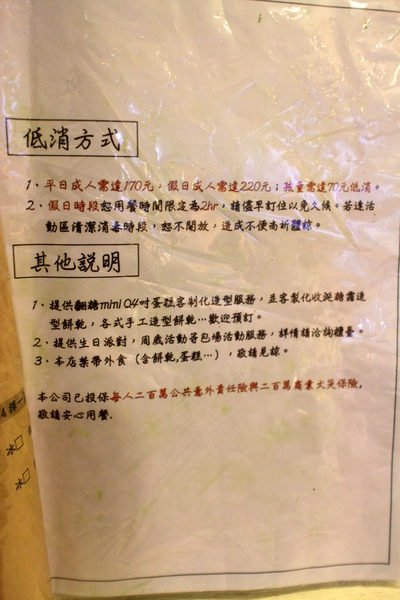 低消方式
1、平日成人需達170元，假日成人需達220元；孩童需達70元低消。
2、假日時段恕用餐時間限定為2hr，請儘早訂位以免久候。若逢活
動區清潔消毒時段，恕不開放，造成不便尚祈體諒。
其他說明
1、提供翻糖mini Q4吋蛋糕客制化造型服務，並客製化收涎糖霜造
型餅乾，各式手工造型餅乾…歡迎預訂。
2、提供生日派對，周歲活動等包場活動服務，詳情請洽詢櫃臺。
3、本店禁帶外食（含餅乾,蛋糕…），敬請見諒。
本公司已投保每人二百萬公共意外責任險與二百萬商業火災保險，
敬請安心用餐.
冰□
冰□